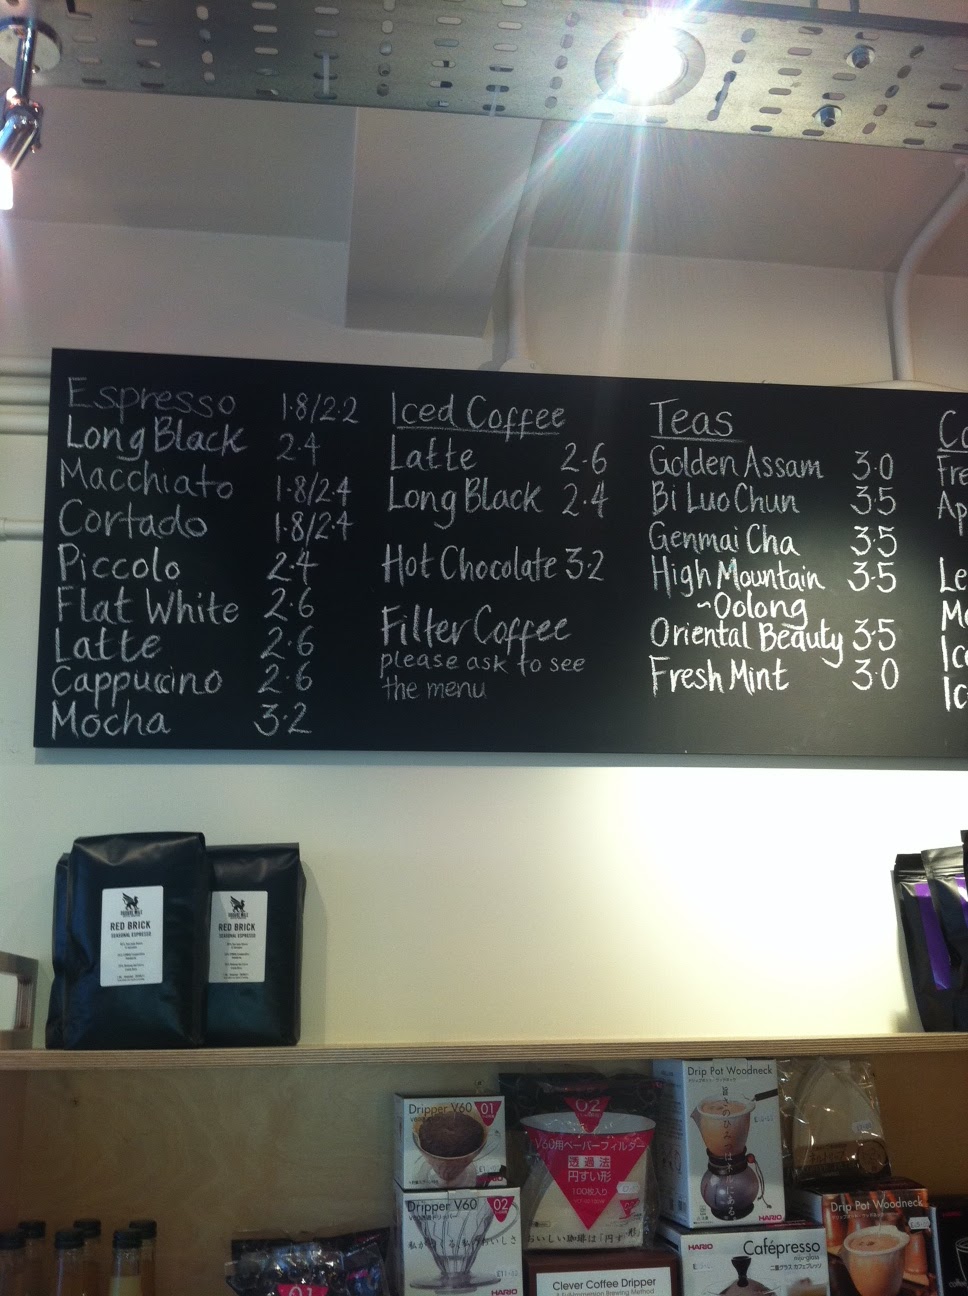 Espresso 1.8/2.2
Long Black 2.4
Macchiato 1.8/2.4
Cortado 1.8/2.4
Piccolo 2.4
Flat White 2.6
Latte 2.6
Cappuccino 2.6
Mocha 3.2
Iced Coffee
Latte 2.6
Long Black 2.4
Hot Chocolate 3.2
Filter Coffee
please ask to see
the menu
Teas
Golden Assam 3.0
Bi Luo Chun 3.5
Genmai Cha 3.5
High Mountain 3.5
~Oolong
Oriental Beauty 3.5
Fresh Mint 3.0
RED BRICK
SEASONAL ESPRESSO
RED BRICK
SEASONAL ESPRESSO
Dripper V60 01
Dripper V60 02
HARIO
02
V60用ペーパーフィルター
透過法
円すい形
100枚入り
おいしい珈琲は「円すい形」
Drip Pot Woodneck
HARIO
Drip Pot Woodneck
HARIO
Cafépresso
Clever Coffee Dripper
01